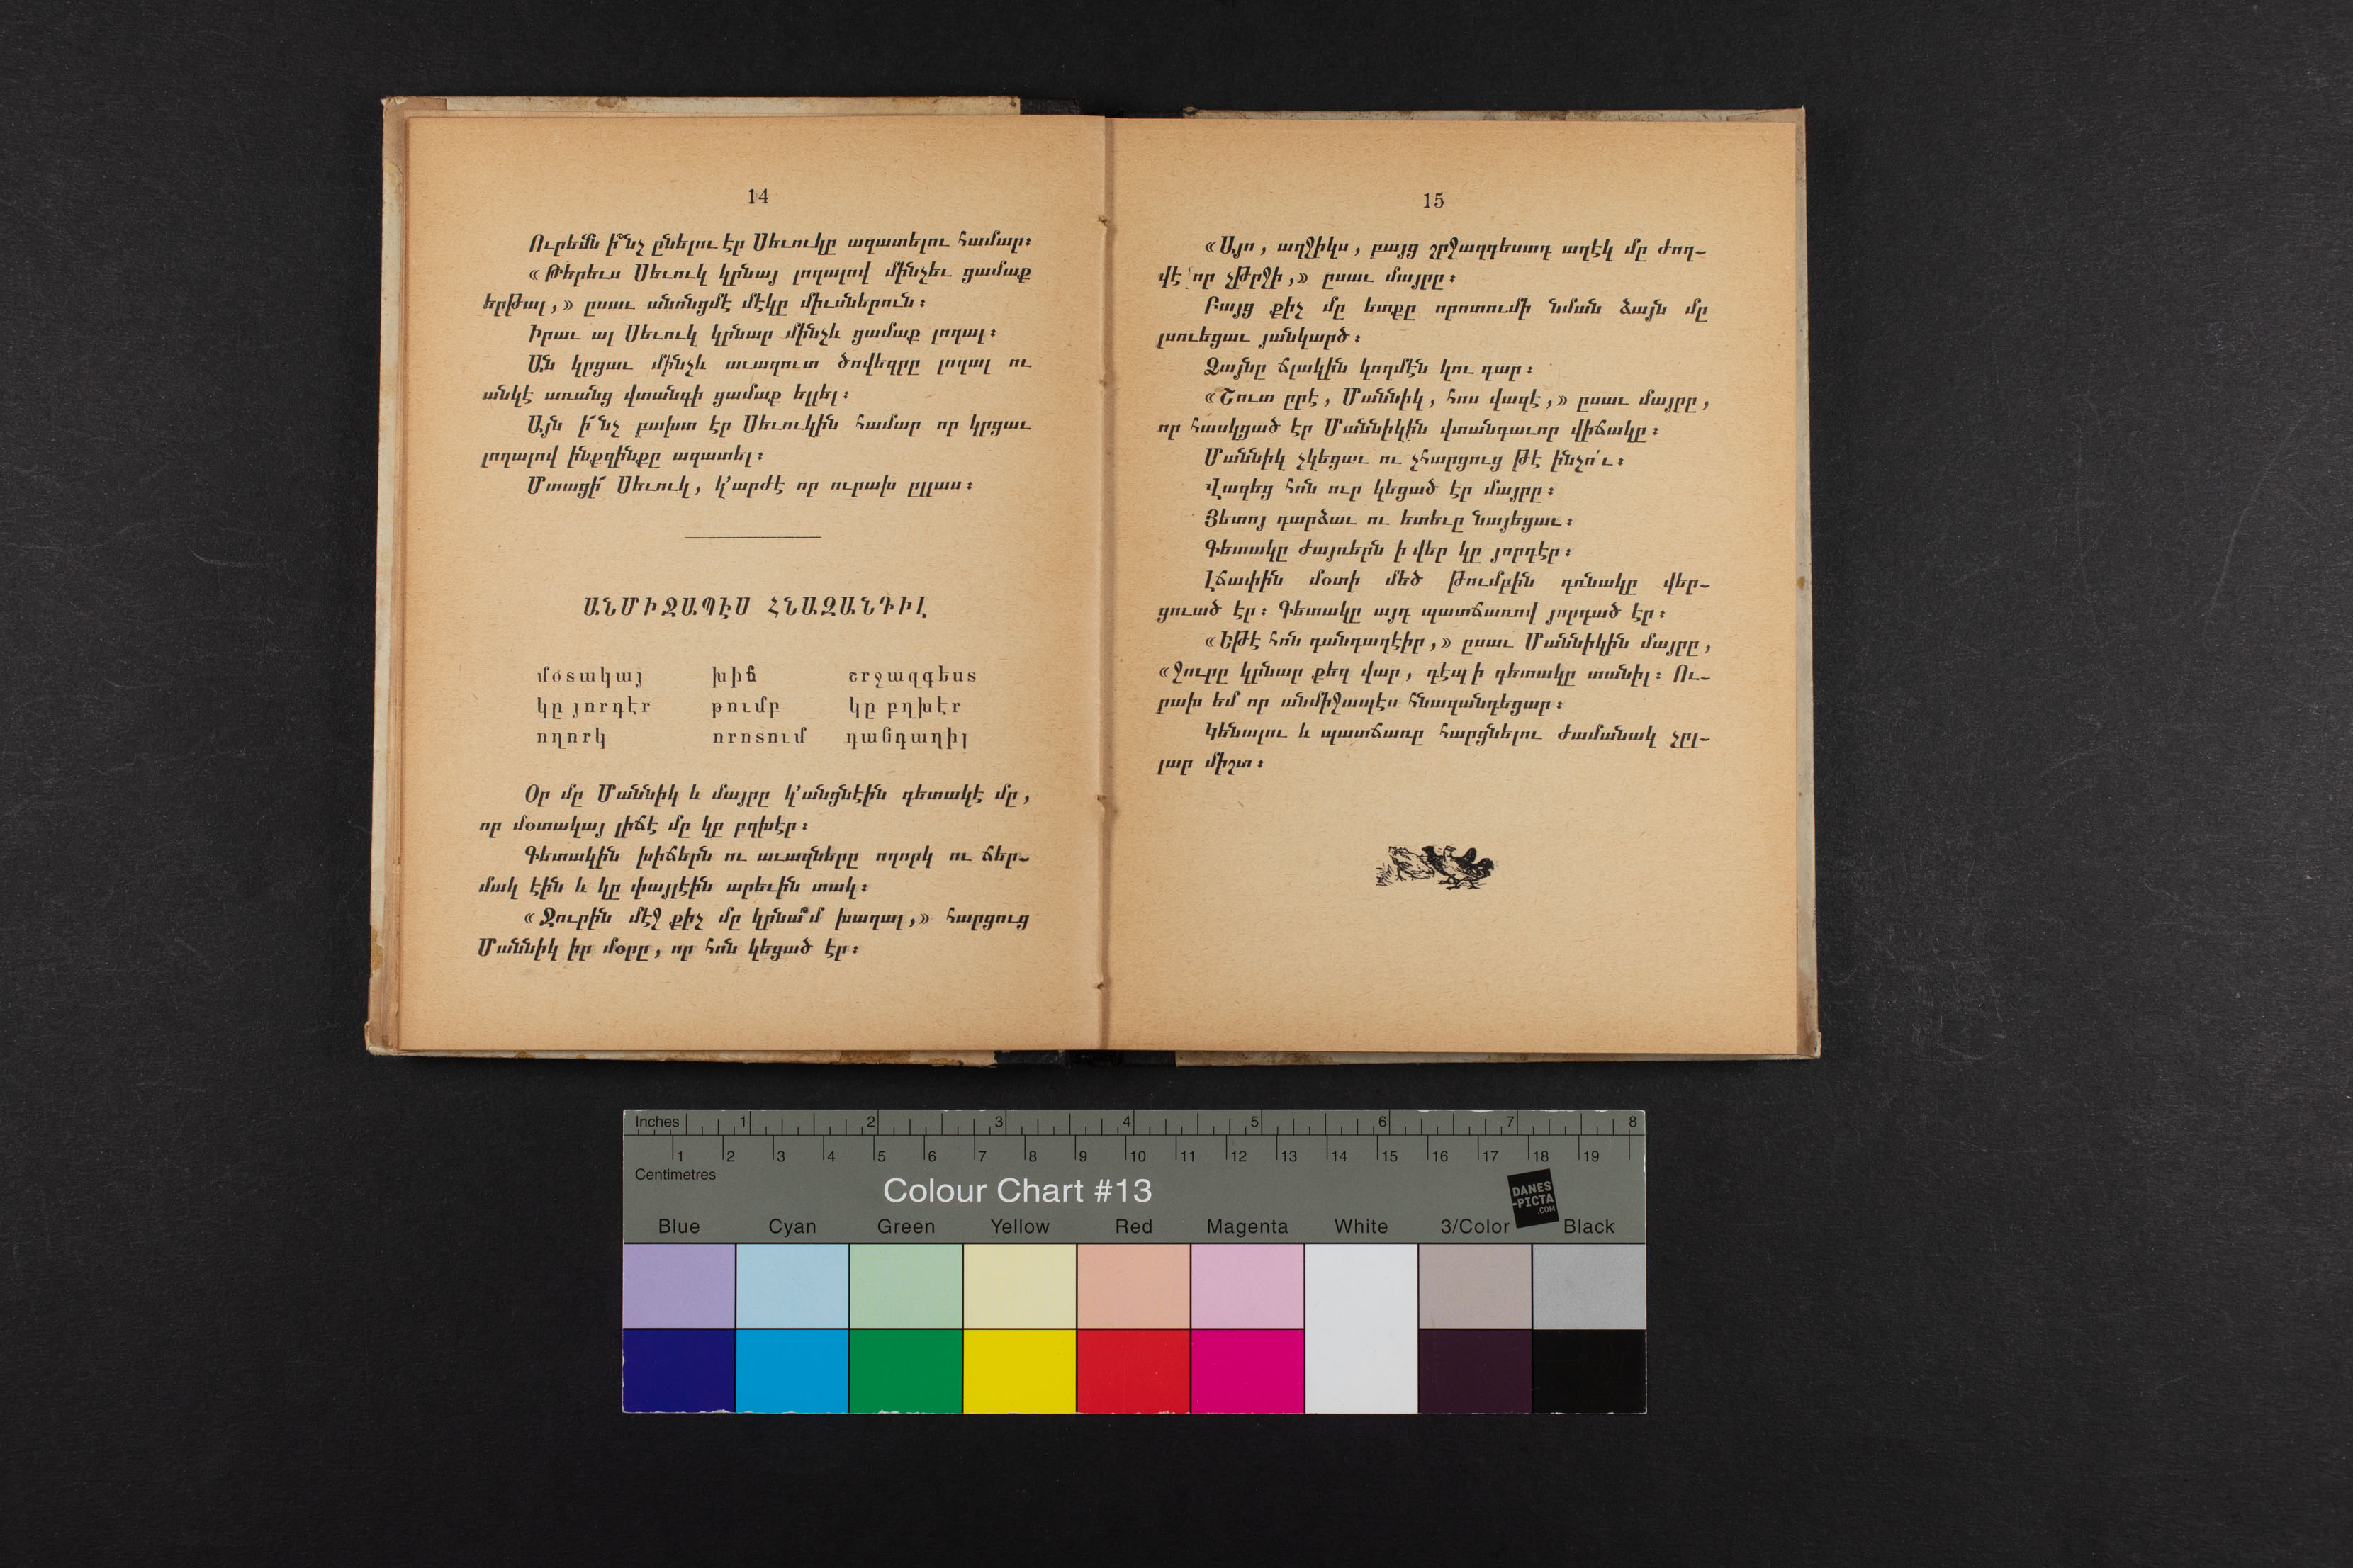 14
Ուրեմն ի՞նչ ընելու էր Սեւուկը ազատելու համար։
«Թերեւս Սեւուկ կրնայ լողալով մինչեւ ցամաք
երթալ,» ըսաւ անոնցմէ մէկը միւսներուն։
Իրաւ ալ Սեւուկ կրնար մինչև ցամաք լողալ։
Ան կրցաւ մինչև աւազուտ ծովեզրը լողալ ու
անկէ առանց վտանգի ցամաք ելլել։
Այն ի՜նչ բախտ էր Սեւուկին համար որ կրցաւ
լողալով ինքզինքը ազատել։
Մտացի՜ Սեւուկ, կ՚արժէ որ ուրախ ըլլաս։
ԱՆՄԻՋԱՊԷՍ ՀՆԱԶԱՆԴԻԼ
մօտակայ խիճ շրջազգեստ
կը յորդէր թումբ կը բղխէր
ողորկ որոտում դանդաղիլ
Օր մը Մաննիկ և մայրը կ՚անցնէին գետակէ մը,
որ մօտակայ լիճէ մը կը բղխէր։
Գետակին խիճերն ու աւազները ողորկ ու ճեր–
մակ էին և կը փայլէին արեւին տակ։
«Ջուրին մէջ քիչ մը կրնա՞մ խաղալ,» հարցուց
Մաննիկ իր մօրը, որ հոն կեցած էր։
15
«Այո, աղջիկս, բայց շրջազգեստդ աղէկ մը ժող–
վէ որ չթրջի,» ըսաւ մայրը։
Բայց քիչ մը ետքը որոտումի նման ձայն մը
լսուեցաւ յանկարծ։
Ձայնը ճլակին կողմէն կու գար։
«Շուտ ըրէ, Մաննիկ, հոս վազէ,» ըսաւ մայրը,
որ հասկցած էր Մաննիկին վտանգաւոր վիճակը։
Մաննիկ չկեցաւ ու չհարցուց թէ ինչո՛ւ։
Վազեց հոն ուր կեցած էր մայրը։
Յետոյ դարձաւ ու ետեւը նայեցաւ։
Գետակը ժայռերն ի վեր կը յորդէր։
Լճափին մօտի մեծ թումբին դռնակը վեր–
ցուած էր։ Գետակը այդ պատճառով յորդած էր։
«Եթէ հոն դանդաղէիր,» ըսաւ Մաննիկին մայրը,
«Ջուրը կրնար քեզ վար, դէպ ի գետակը տանիլ։ Ու–
րախ եմ որ անմիջապէս հնազանդեցար։
Կենալու և պատճառը հարցնելու ժամանակ չըլ–
լար միշտ։
Inches 1 2 3 4 5 6 7 8
1 2 3 4 5 6 7 8 9 10 11 12 13 14 15 16 17 18 19
Centimetres
Colour Chart #13
DANES
-PICTA
.COM
Blue Cyan Green Yellow Red Magenta White 3/Color Black